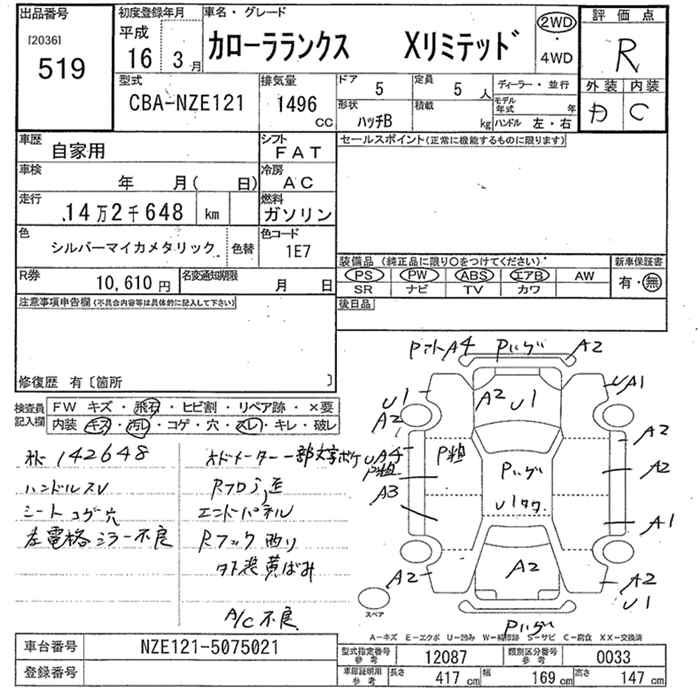 出品番号
[2036]
519
初度登録年月
平成
16年
3月
車名・グレード
カローラランクス Xリミテッド
2WD
・
4WD
評価点
R
外装 内装
D C
型式
CBA-NZE121
排気量
1496
CC
ドア
5
定員
5人
ディーラー・並行
形状
ハッチB
積載
kg
モデル年式 年
ハンドル 左・右
車歴
自家用
シフト
FAT
セールスポイント(正常に機能するものに限ります)
車検
年 月( 日)
冷房
AC
走行
14万2千648
km
燃料
ガソリン
色
シルバーマイカメタリック
色替
色コード
1E7
装備品(純正品に限り○をつけてください)
新車保証書
PS PW ABS エアB AW
SR ナビ TV カワ
有・無
R券
10,610円
名変通知期限
月 日
後日品
注意事項申告欄(不具合内容等は具体的に記入して下さい)
修復歴 有〔箇所 〕
検査員
記入欄
FW キズ・飛石・ヒビ割・リペア跡・×要
内装 キズ・汚レ・コゲ・穴・スレ・キレ・破レ
142648
ハンドルスレ
シートコゲ穴
左電格ミラー不良
オドメーター一部文字ボケ
Rフロア歪
エンドパネル
Rフック曲り
外装黄ばみ
A/C不良
A4
Pハゲ
A2
U1
A2
A2
U1
UA1
UA4
P粗
A3
P粗
Pハゲ
U1タタ
A2
A2
A1
A2
A2
A2
U1
Pハゲ
スペア
A-キズ E-エクボ U-凹み W-補修跡 S-サビ C-腐食 XX-交換済
車台番号
NZE121-5075021
登録番号
型式指定番号
参考
12087
類別区分番号
参考
0033
車庫証明用
参考
長さ
417 cm
幅
169 cm
高さ
147 cm